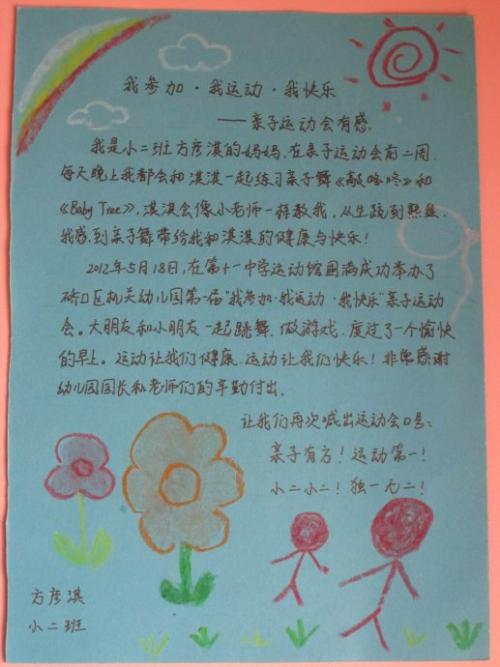 我参加·我运动·我快乐
——亲子运动会有感
我是小二班方彦淇的妈妈,在亲子运动会前二周,
每天晚上我都会和淇淇一起练习亲子舞《敲咚咚》和
《Baby Tree》,淇淇会像小老师一样教我,从生疏到熟练,
我感到亲子舞带给我和淇淇的健康与快乐!
2012年5月18日,在第十一中学运动馆圆满成功举办了
硚口区机关幼儿园第一届“我参加·我运动·我快乐”亲子运动
会。大朋友和小朋友一起跳舞、做游戏,度过了一个愉快
的早上。运动让我们健康,运动让我们快乐!非常感谢
幼儿园园长和老师们的辛勤付出。
让我们再次喊出运动会口号:
亲子有方!运动第一!
小二小二!独一无二!
方彦淇
小二班